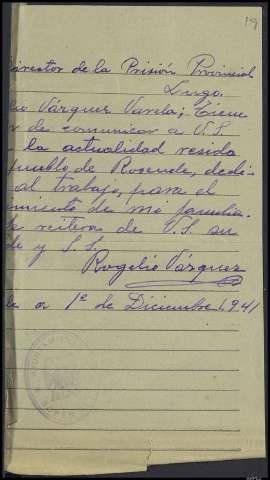 19
Director de la Prisión Provincial
Lugo.
lio Várquez Varela; tiene
r de comunicar a V.S.
la actualidad resido
pueblo de Rosende, dedi-
al trabajo, para el
imiento de mi familia.
reitera de V.S. su
de y S.S.
Rogelio Várquez
de a 1º de Diciembre 1.941